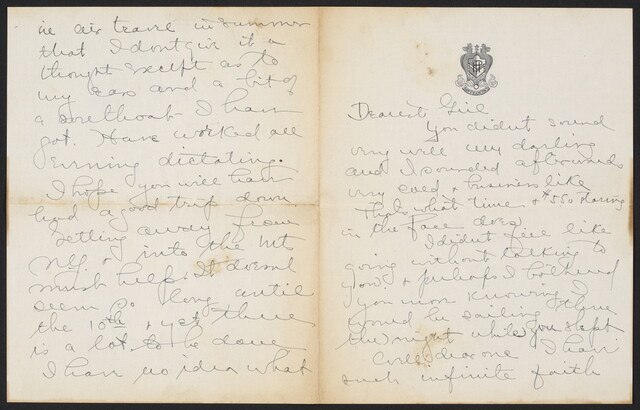 Dearest Girl
You didn't sound
very well my darling
and I sounded afterwards
very cold & business like
That's what time & $5.50 staring
in the face does
I didn't feel like
going without talking to
you & perhaps I bothered
you more knowing I
would be sailing thru
the night while you slept
Well dear one I have
such infinite faith
in air travel in summer
that I dont give it a
thought except as to
my ears and a bit of
a sorethroat I have
got. Have worked all
evening dictating.
I hope you will have
had a good trip down
Getting away from
N.Y. & into the Mts
must help. It doesnt
seem so long until
the 10th & yet there
is a lot to be done
I have no idea what